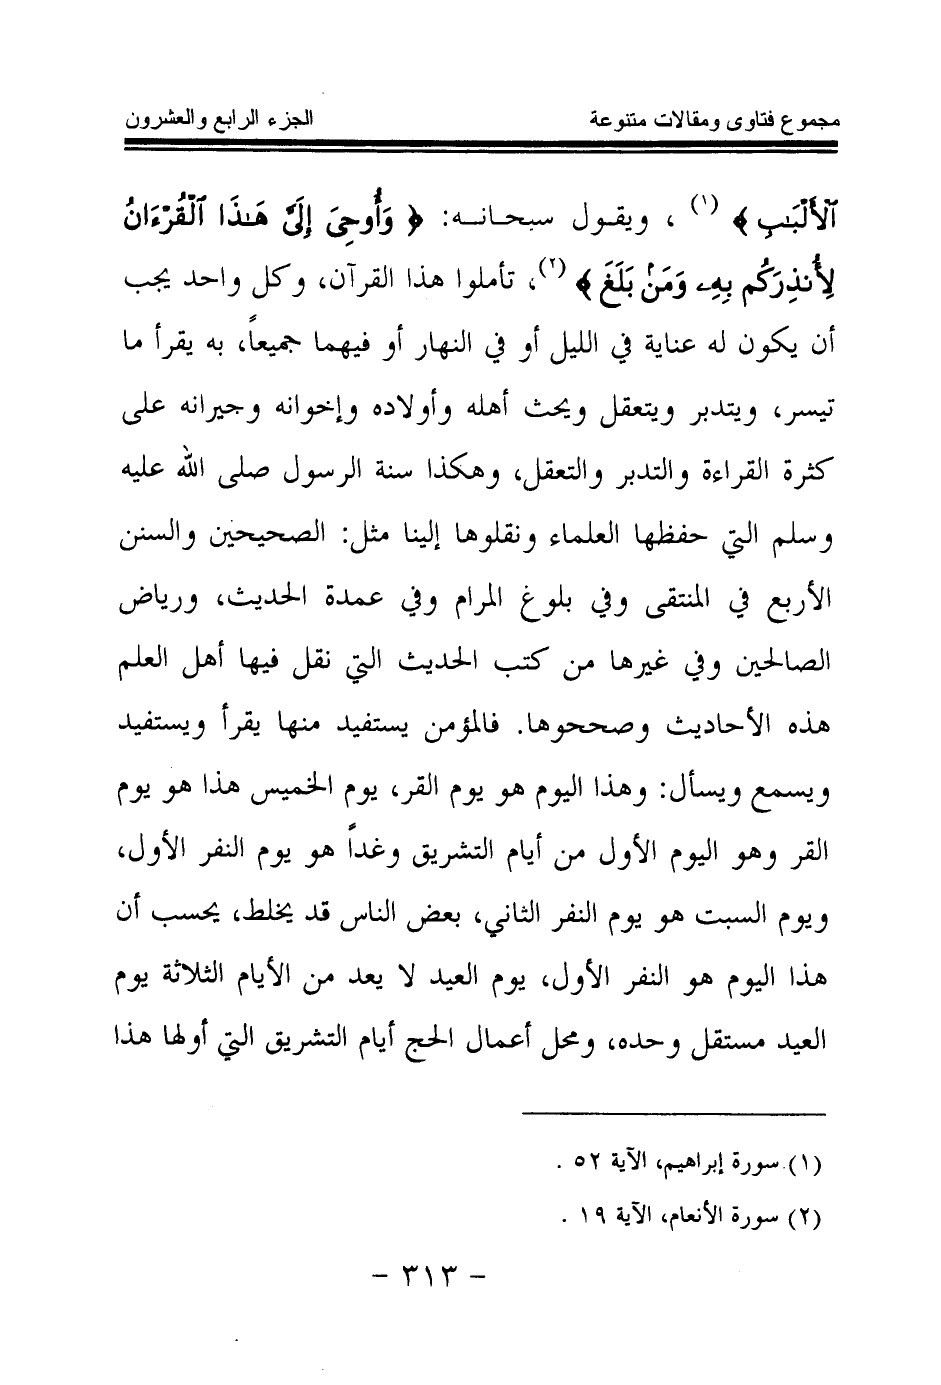 مجموع فتاوى ومقالات متنوعة الجزء الرابع والعشرون
ٱلْأَلْبَٰبِ ﴾ (١) ، ويقول سبحانه: ﴿ وَأُوحِىَ إِلَىَّ هَٰذَا ٱلْقُرْءَانُ
لِأُنذِرَكُم بِهِۦ وَمَنۢ بَلَغَ ﴾ (٢)، تأملوا هذا القرآن، وكل واحد يجب
أن يكون له عناية في الليل أو في النهار أو فيهما جميعاً، به يقرأ ما
تيسر، ويتدبر ويتعقل ويحث أهله وأولاده وإخوانه وجيرانه على
كثرة القراءة والتدبر والتعقل، وهكذا سنة الرسول صلى الله عليه
وسلم التي حفظها العلماء ونقلوها إلينا مثل: الصحيحين والسنن
الأربع في المنتقى وفي بلوغ المرام وفي عمدة الحديث، ورياض
الصالحين وفي غيرها من كتب الحديث التي نقل فيها أهل العلم
هذه الأحاديث وصححوها. فالمؤمن يستفيد منها يقرأ ويستفيد
ويسمع ويسأل: وهذا اليوم هو يوم القر، يوم الخميس هذا هو يوم
القر وهو اليوم الأول من أيام التشريق وغداً هو يوم النفر الأول،
ويوم السبت هو يوم النفر الثاني، بعض الناس قد يخلط، يحسب أن
هذا اليوم هو النفر الأول، يوم العيد لا يعد من الأيام الثلاثة يوم
العيد مستقل وحده، ومحل أعمال الحج أيام التشريق التي أولها هذا
(١) سورة إبراهيم، الآية ٥٢ .
(٢) سورة الأنعام، الآية ١٩ .
- ٣١٣ -